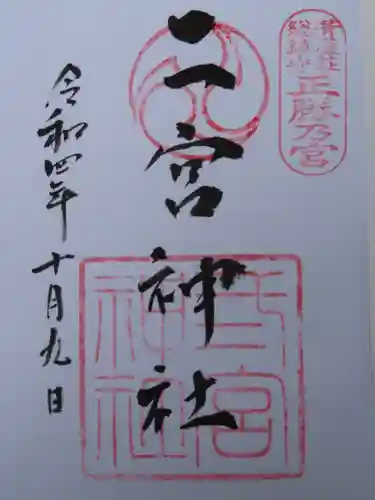 正勝乃宮
二宮神社
二宮神社
令和四年十月九日